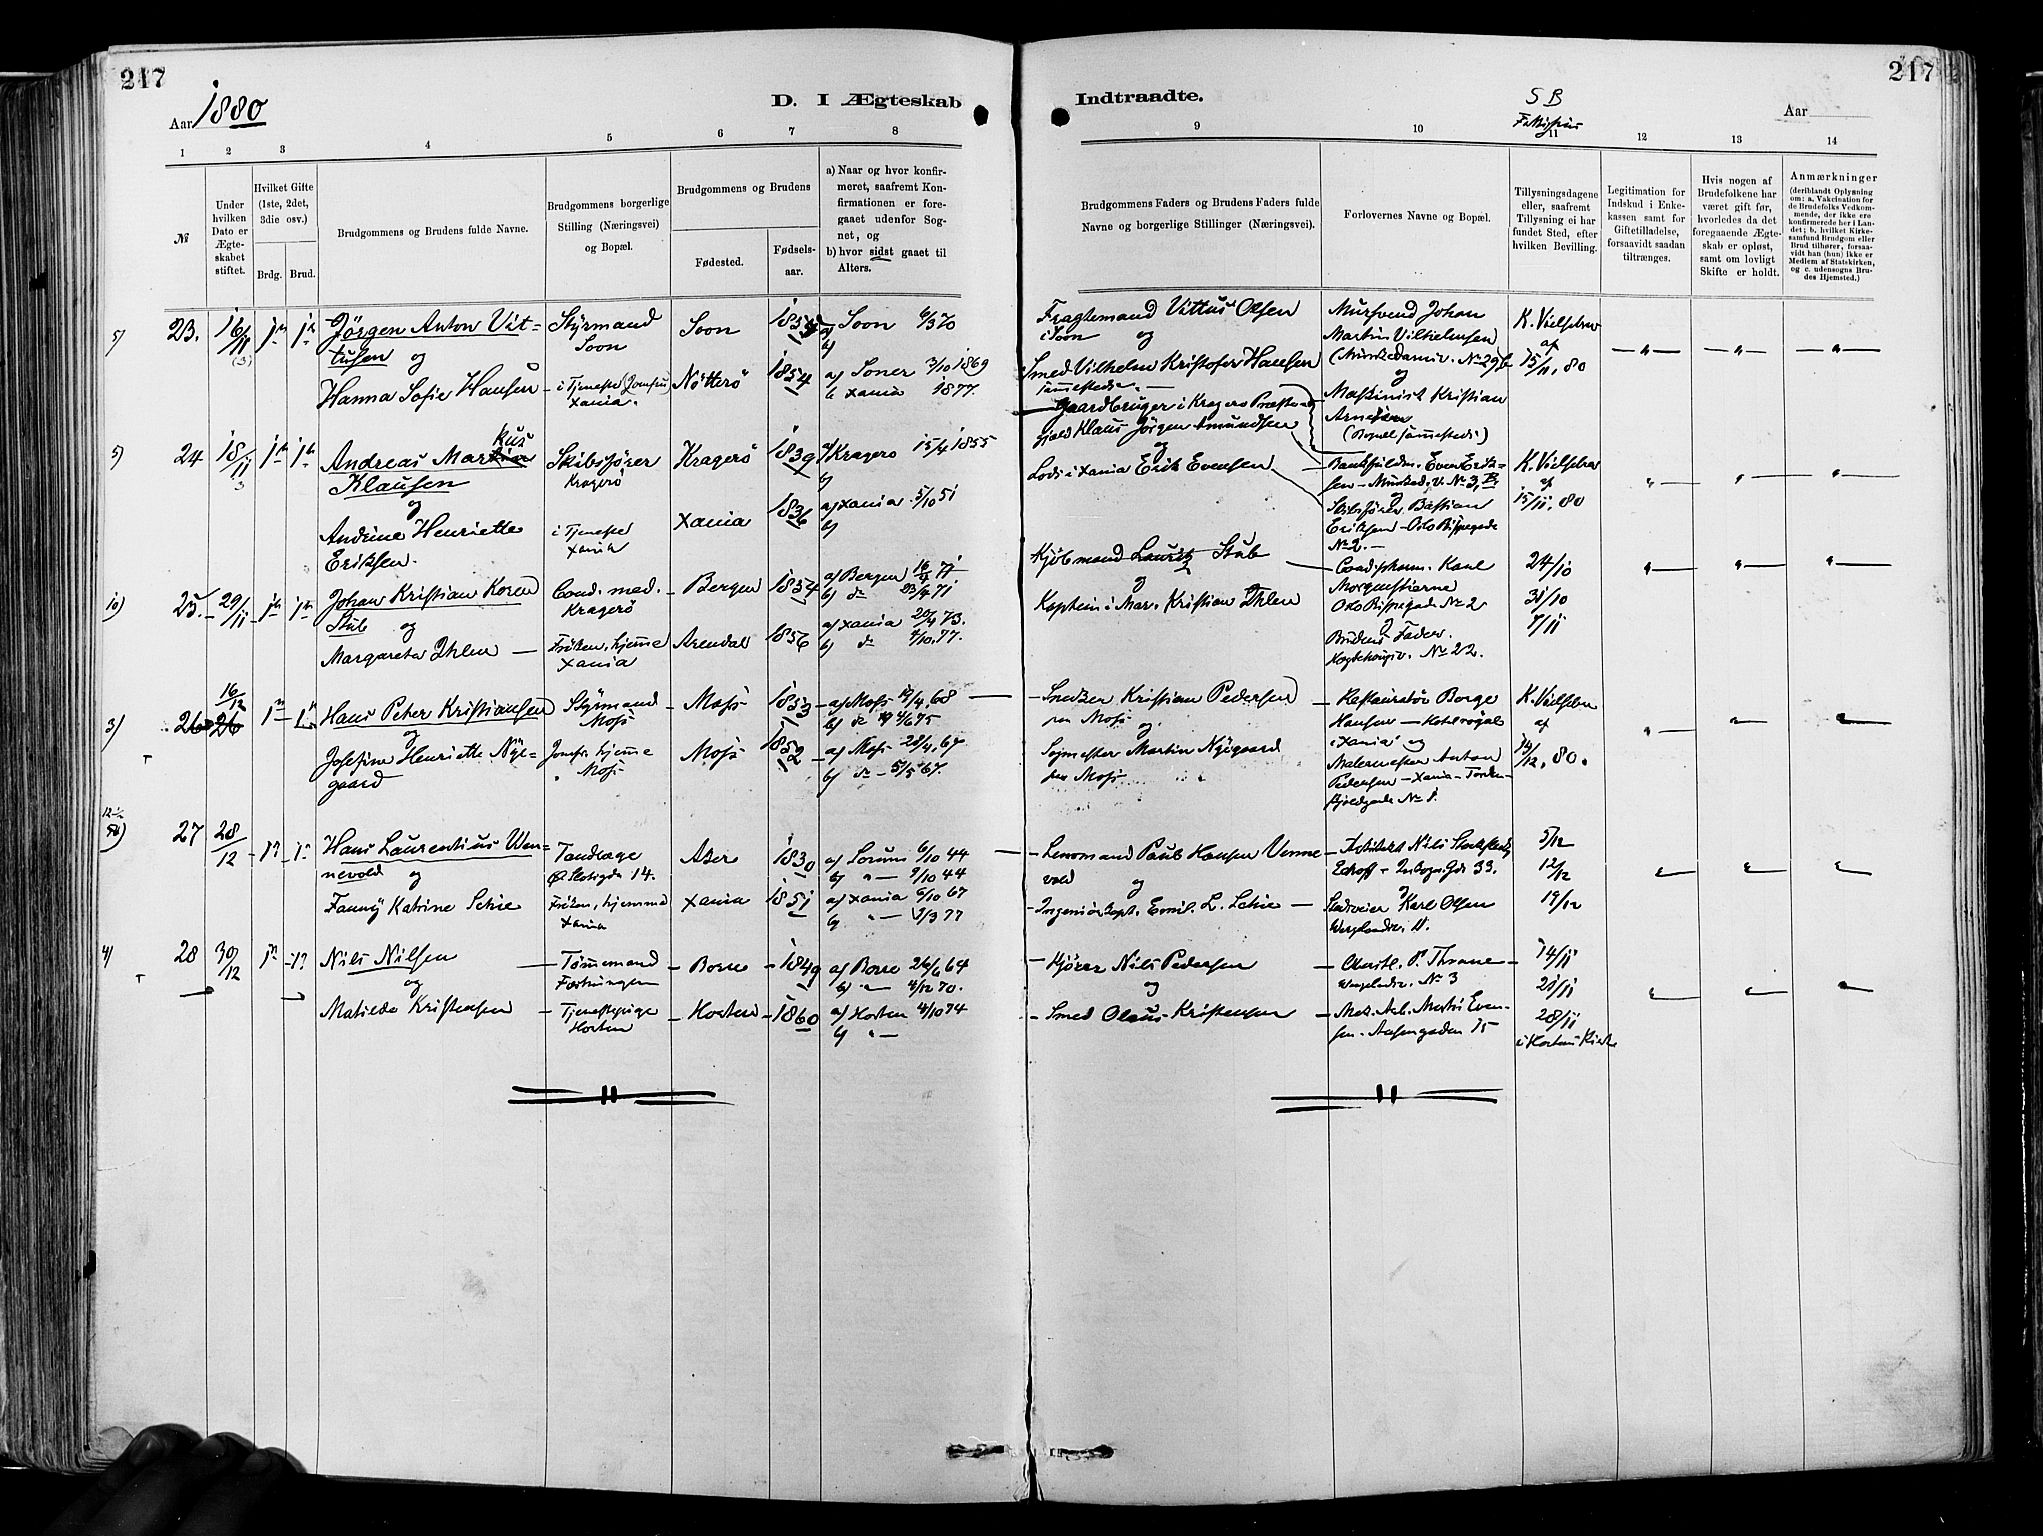 217
Aar 1880
D. I Ægteskab
1 2 3 4 5 6 7 8
№
Under hvilken Dato er Ægteskabet stiftet.
Hvilket Gifte (1ste, 2det, 3die osv.)
Brdg. Brud.
Brudgommens og Brudens fulde Navne.
Brudgommens borgerlige Stilling (Næringsvei) og Bopæl.
Brudgommens og Brudens
Fødested. Fødselsaar.
a) Naar og hvor konfirmeret, saafremt Konfirmationen er foregaaet udenfor Sognet, og
b) hvor sidst gaaet til Alters.
5) 23. 16/11 (3) Jørgen Anton Vit- Styrmand Soon 1854 a) Soon 6/5 70
tusen og Soon b)
Hanna Sofie Hansen i Tjeneste (Jomfru) Nötterö 1854 a) Soner 3/10 1869
Xania. b Xania 1877.
5) 24 18/11 3 Andreas Markus Skibsfører Kragerö 1839 a) Kragerø 15/4 1855
Klausen Kragerø b)
og
Andrine Henriette i Tjeneste Xania 1836 a) Xania 5/10 51
Eriksen. Xania b)
10) 25. 29/11 Johan Kristian Koren Cand. med. Bergen 1854 a) Bergen 16/4 71
Stub og Kragerö b) do 23/4 71
Margareta Ihlen Frøken, hjemme Arendal 1856 a) Xania 20/4 73.
Xania b) do 4/10. 77.
3) 26 16/12 Hans Peter Kristiansen Styrmand Moss 1853 a) Moss 19/4, 68
og Moss b) do 4/6 75
Josefine Henriette Nye- Jomfr. hjemme Moss 1852 a) Moss 28/4, 67
gaard Moss b) do 5/5 67.
27 28/12 Hans Laurentius Wen- Tandlæge Asker 1830 a) Sorum 6/10 44
nevold og Ø Slotsgde 14. b) " 9/10 44
Fanny Katrine Schie Frøken, hjemme Xania 1851 a) Xania 6/10 67
Xania b) " 3/3 77
4) 28 30/12 Nils Nilsen Tömmermand Borre 1849 a) Borre 26/6 64
og Fæstningen b) " 4/12 70.
Matilda Kristensen Tjenestepige Horten 1860 a) Horten 4/10 74
Horten b) "
Indtraadte.
217
S B
Aar
9 10 11 12 13 14
Brudgommens Faders og Brudens Faders fulde Navne og borgerlige Stillinger (Næringsvei).
Forlovernes Navne og Bopæl.
Tillysningsdagene eller, saafremt Tillysning ei har fundet Sted, efter hvilken Bevilling.
Legitimation for Indskud i Enkekassen samt for Giftetilladelse, forsaavidt saadan tiltrænges.
Hvis nogen af Brudefolkene har været gift før, hvorledes da det foregaaende Ægteskab er opløst, samt om lovligt Skifte er holdt.
Anmærkninger
(deriblandt Oplysning om: a. Vakcination for de Brudefolks Vedkommende, der ikke ere konfirmerede her i Landet; b. hvilket Kirkesamfund Brudgom eller Brud tilhører, forsaavidt han (hun) ikke er Medlem af Statskirken, og c. udensogns Brudes Hjemsted.)
Fragtemand Vittus Olsen Mursvend Johan
i Soon Martin Vilhelmsen K. Vielsbrev
og (Munkedamsv. No 29 b af
Smed Vilhelm Kristofer Hansen og 15/11, 80
sammesteds. Maskinist Kristian
Arnesen
(Bopæl sammesteds)
Gaardbruger i Kragerø Præste-
gjeld Klaus Jörgen Amundsen
og
Lods i Xania Erik Evensen Even Erik- K. Vielsbrev
sen - Munked. V. No 3, B. af
og 15/11, 80
Skibsfører Bastian
Eriksen - Oslo Bispegade
No 2.
Kjöbmand Lauritz Stub Cand. pharm. Karl 24/10
og Morgenstierne 31/10
Kaptein i Mar. Kristian Ihlen Oslo Bispegade No 2 7/11
og
Brudens Fader.
No 22.
Kristian Pedersen Restauratör Borge K. Vielsbrev
paa Moss Hansen - Hotel royal af
og i Xania og 14/12, 80.
Martin Nygaard Malermester Anton
paa Moss Pedersen - Xania - Torden-
skjoldsgade No 1.
Lensmand Paul Hansen Venne- Arkitekt Nils Stockfleth 5/12
vold Eckhoff - 33. 12/12
og og 19/12
Ingeniörkapt. Emil L. Schie Karl Olsen
11.
Kjörer Nils Pedersen P. Thrane 14/11
og No 3 21/11
Smed Olaus Kristensen Even- 28/11
sen. Aasengaden 15 i Horten Kirke